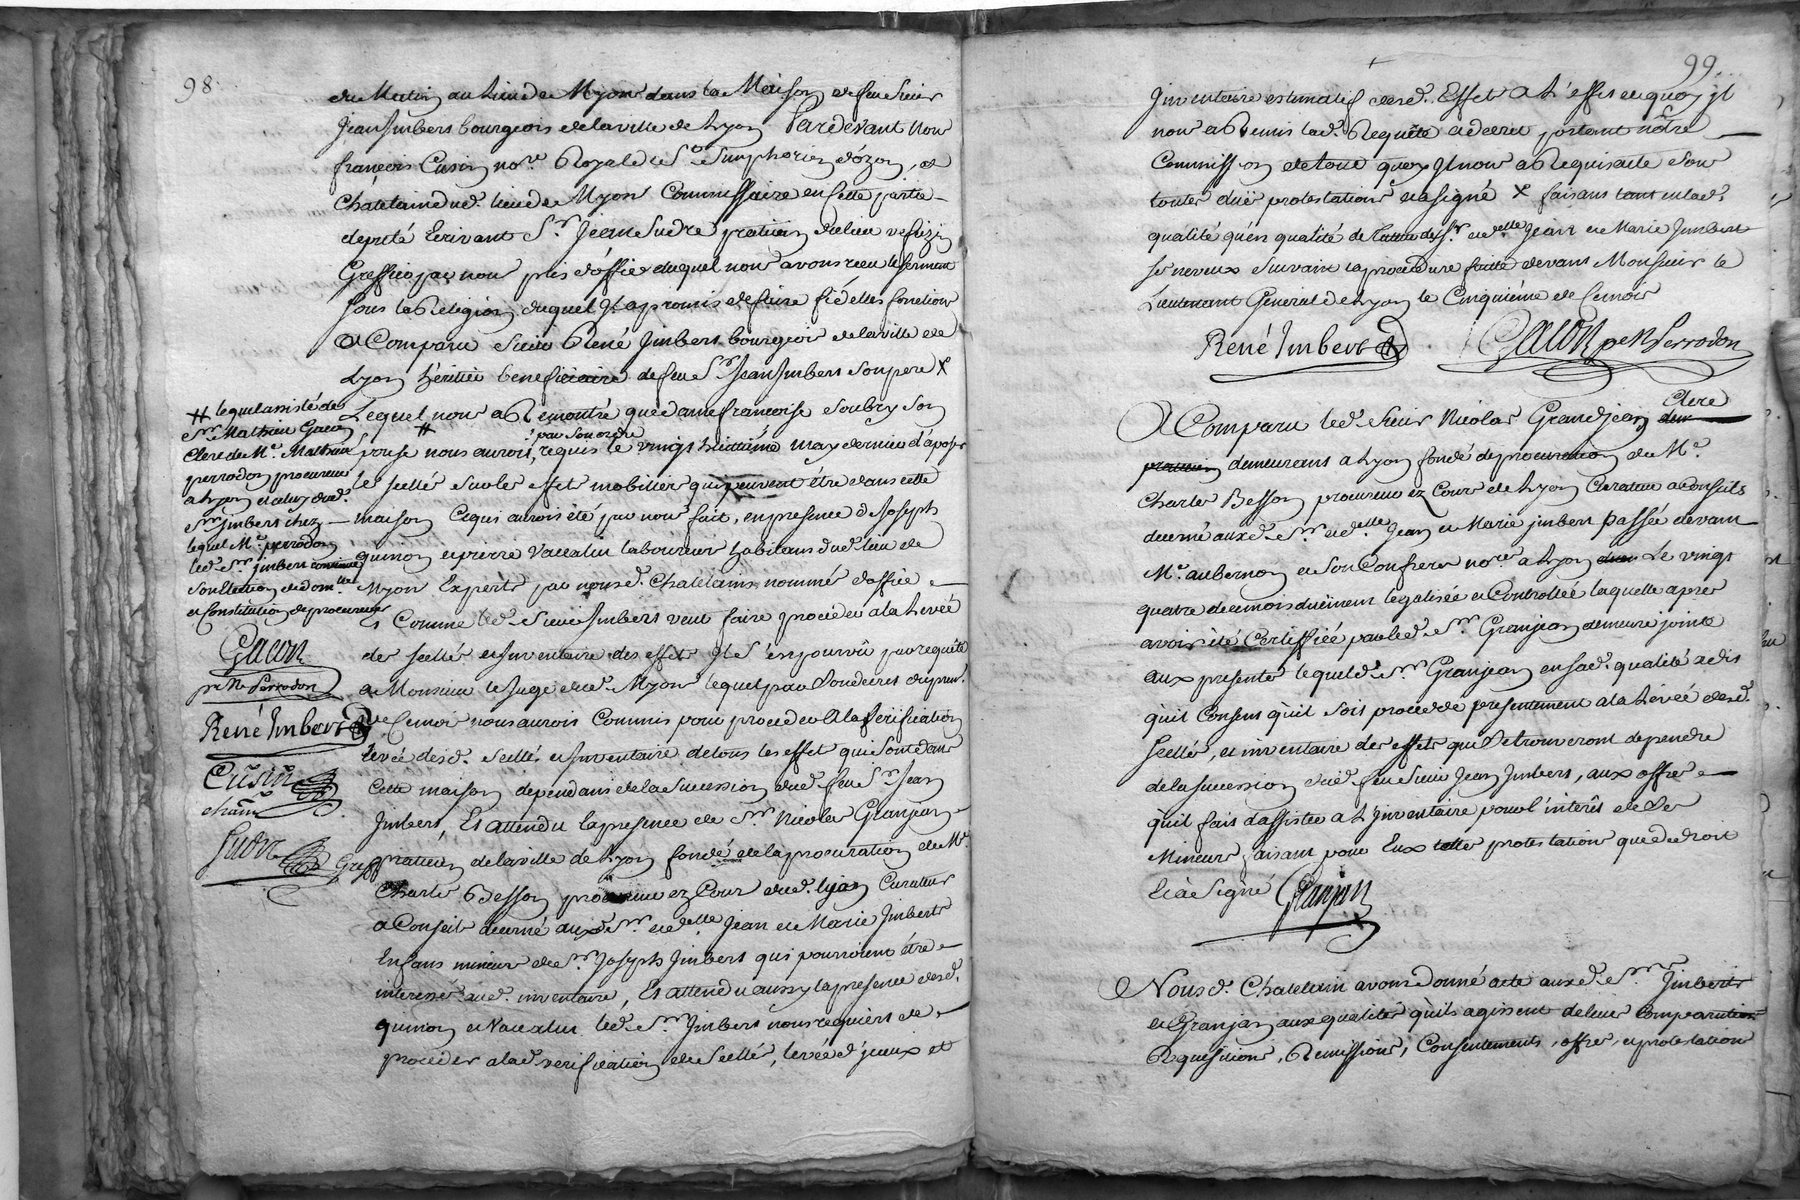 98.
du Matin au Lieu de Myons dans la Maison de feu Sieur
Jean Imbert bourgeois de la ville de Lyon Pardevant Nous
françois Cusin no.re Royal de S.t Simphorien d'ozon, et
Châtelain dud. lieu de Myons Commissaire en cette partie
deputé Ecrivant S.r Jean Sudre praticien du lieu
Greffier par nous pris d'office duquel nous avons reçu le serment
sous la Religion duquel Il a promis de faire fidelles fonctions
A Comparu Sieur René Imbert bourgeois de la ville de
Lyon héritier beneficiaire de feu S.r Jean Imbert son pere
Lequel nous a Remontré que dame françoise Soubry son
par son ordre
pouse nous auroit, requis le vingt huitième may dernier d'aposer
les scellés sur les effets mobiliers qui peuvent être dans cette
maison Ce qui auroit été par nous fait, en presence de Joseph
quinon et pierre Vacalin laboureurs habitans dud. lieu de
Myons Experts par nousd. Chatelain nommés d'office
Comme led. Sieur Imbert veut faire procéder à la Levée
des scellés et Inventaire des effets Il s'est pourvû par requête
a Monsieur le Juge dud. Myons lequel par Son decret du
de ce mois nous auroit Commis pour proceder A la Vérification
levée desd. scellés et Inventaire de tous les effets qui sont dans
Cette maison dependans de la sucession dud. feu S.r Jean
Imbert, Et attendu la presence de S.r Nicolas Granjean
praticien de la ville de Lyon fondé de la procuration de M.e
Charle Besson procureur ez Cour dud. lyon Curateur
a Conseil decerné auxd. S.r et d.elle Jean et Marie Imberts
Enfans mineurs de S.r Joseph Imbert qui pourroient être
interressés aud. inventaire, Et attendu aussy la presence desd.
quinon et Vacalin led. S.r Imbert nous requiert de
proceder a lad. verification de scellés, levée d'iceux et
# lequel assisté de
S.r Mathieu Gacon
Clerc de M.e Mathieu
perrodon procureur
a Lyon et celuy dud.
S.r Imbert chez
lequel M.e perrodon
led. S.r imbert continue
son Election de dom.lle
et Constitution de procureur
Gacon
pr M.e Perrodon
René Imbert
Cusin
chatn
Sudre
Greff
99.
Inventaire estimatif desd. Effets A L'effet de quoy il
nous a Remis lad. Requête et decret portant nôtre
Commission et de tout quoy Il nous a Requis acte sous
toutes düe protestations et a signé faisant tant en lad.
qualité qu'en qualité de tuteur desd. S.r et d.elle Jean et Marie Imbert
ses neveux Suivant la procedure faitte devant Monsieur le
Lieutenant General de Lyon le Cinquième de ce mois
René Imbert Gacon pr M.e Perrodon
A Comparu led. Sieur Nicolas Grandjean Clerc
praticien demeurant a Lyon fondé de procuration de M.e
Charles Besson procureur ez Cours de Lyon Curateur a Conseils
decerné auxd. S.r et d.elle Jean et Marie imbert Passée devant
M.e aubernon et Son Confrere no.re a Lyon Le vingt
quatre de ce mois düement legalisée et Controllée laquelle apres
avoir été Certiffiée par led. S.r Granjean demeure jointe
aux presentes lequel d. S.r Granjean en sad. qualité a dit
qu'il Consent qu'il soit procédé presentement a la Levée desd.
scellés, et inventaire des effets qui se trouveront dependre
de la succession dud. feu Sieur Jean Imbert, aux offres
qu'il fait d'assister a L'Inventaire pour l'intérêt de Ses
Mineurs faisant pour Eux telle protestation que de droit
Et a Signé Granjan
Nous d. Chatelain avons donné acte auxd. S.rs Imberts
et Granjan aux qualités qu'ils agissent de leurs Comparutions
Requisitions, Remissions, Consentements, offres, et protestations